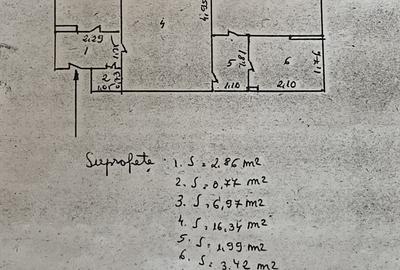 4,95
4
2.29
1
1,25
5
1,81
6
1,71
2
1,05
0,73
1,10
2,10
Suprafețe : 1. S = 2.86 m²
2. S = 0,77 m²
3. S = 6,97 m²
4. S = 16,34 m²
5. S = 1,99 m²
6. S = 3,42 m²